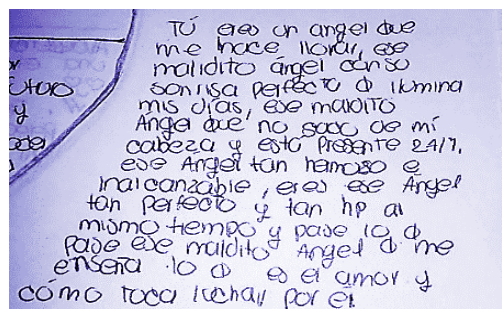 TÚ eres un angel que
me hace llorar, ese
malidito ángel con su
sonrisa perfecta q ilumina
mis días, ese maldito
Angel que no saco de mi
cabeza y está presente 24/7,
ese Angel tan hermoso e
inalcanzable, eres ese Angel
tan perfecto y tan hp al
mismo tiempo y pase lo q
pase ese maldito Angel q me
enseña lo q es el amor y
cómo toca luchar por él.
y